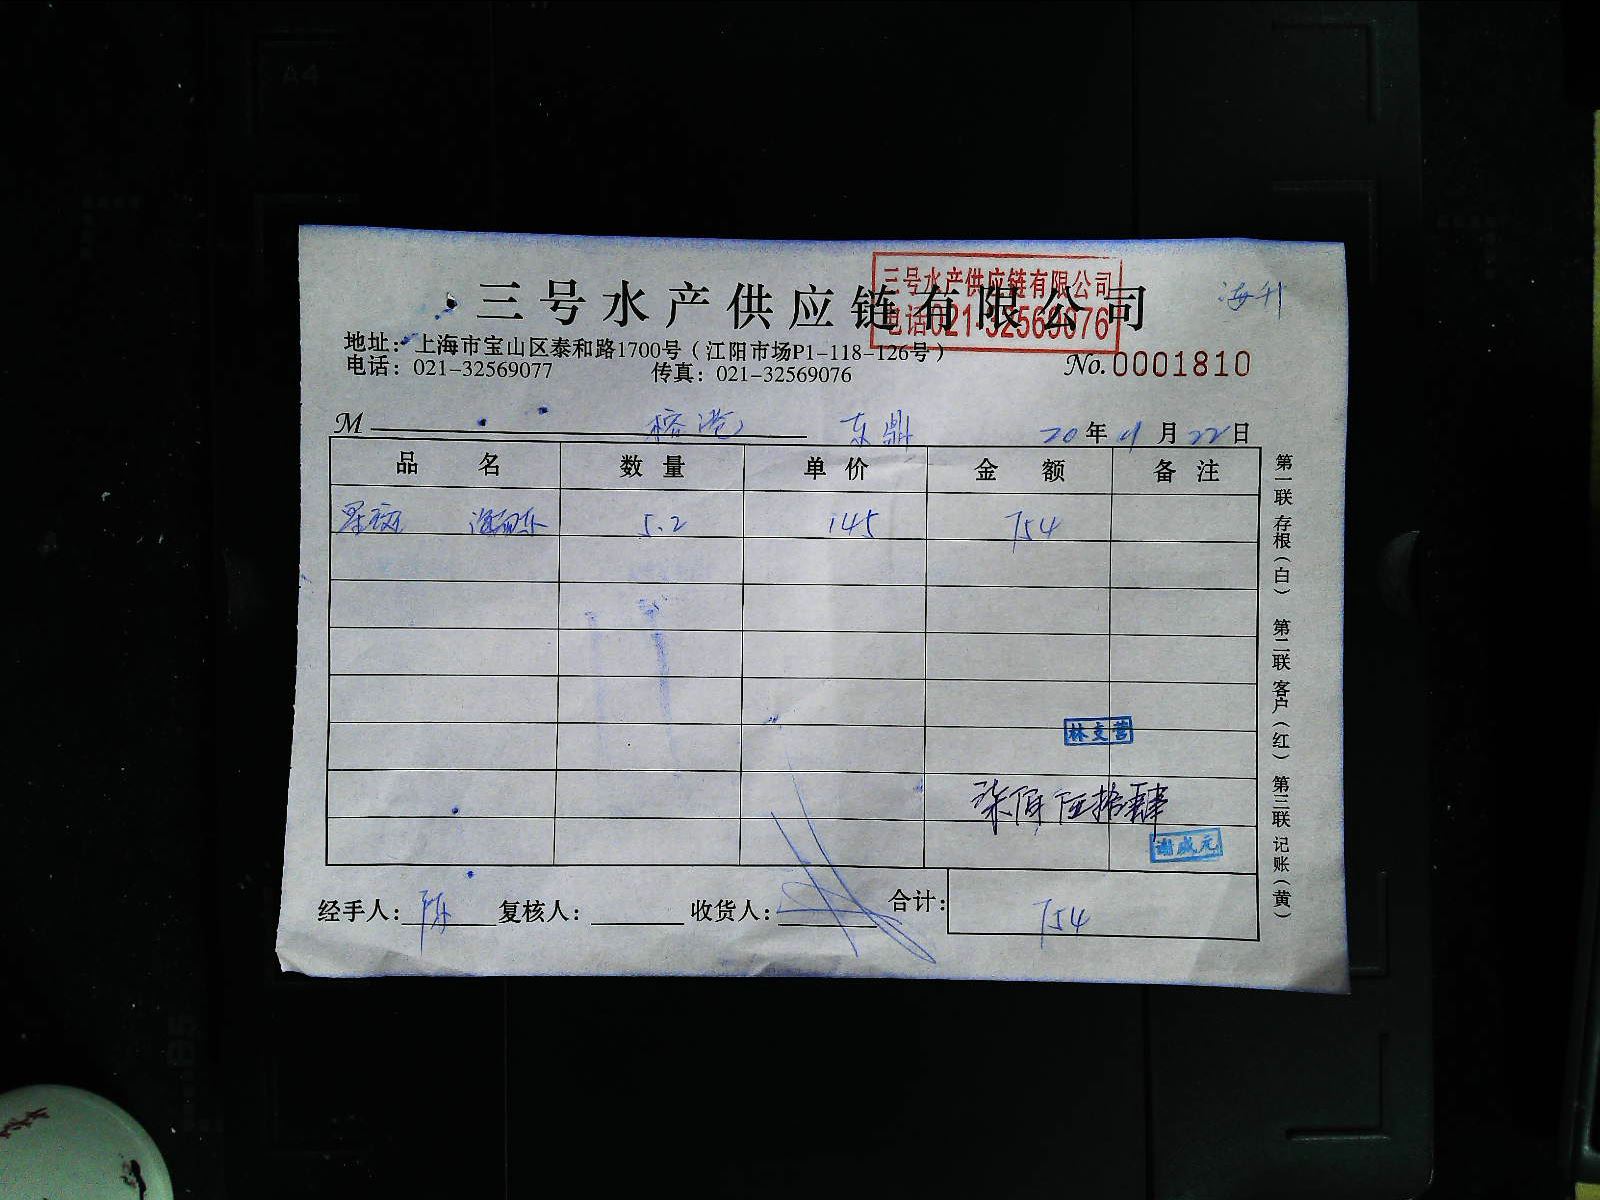 三号水产供应链有限公司
三号水产供应链有限公司
电话:021-32569076
海升
地址：上海市宝山区泰和路1700号（江阳市场P1-118-126号）
电话：021-32569077 传真：021-32569076
No.0001810
M 榕港 东鼎 20年 月22日
品名 数量 单价 金额 备注
星斑 5.2 145 754
林支营
柒佰伍拾肆
谢成元
经手人：陈 复核人： 收货人： 合计：754
第一联存根（白） 第二联客户（红） 第三联记账（黄）
A4